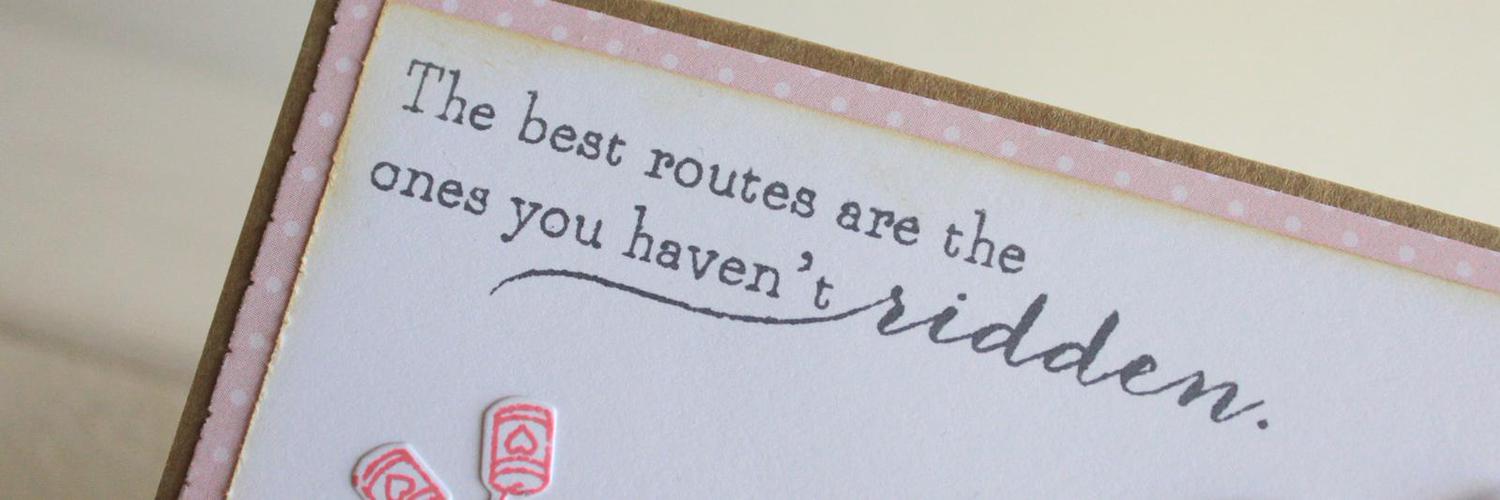 The best routes are the
ones you haven't ridden.